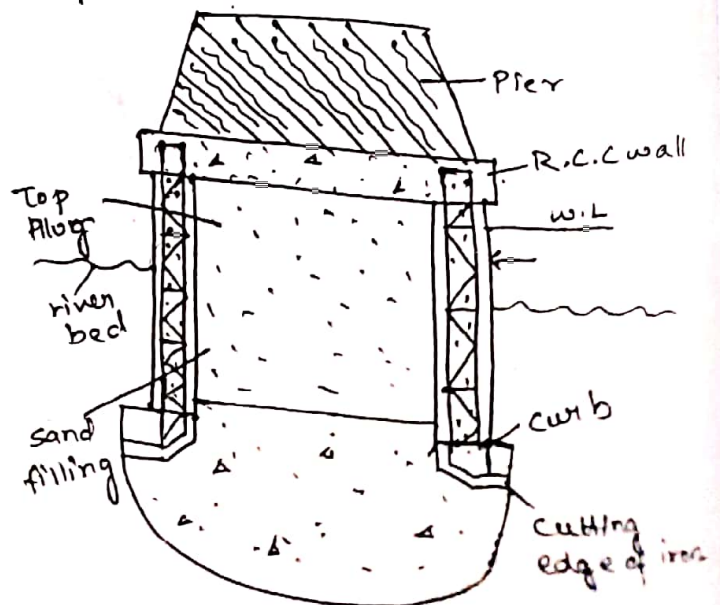 Pier
R.C.C wall
Top
Plug
W.L
river
bed
curb
sand
filling
cutting
edge of iron